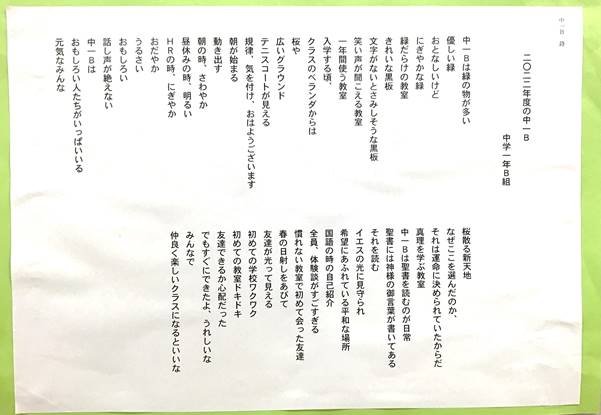 中一B 詩
二〇二二年度の中一B
中学一年B組
中一Bは緑の物が多い
優しい緑
おとなしいけど
にぎやかな緑
緑だらけの教室
きれいな黒板
文字がないとさみしそうな黒板
笑い声が聞こえる教室
一年間使う教室
入学する頃、
クラスのベランダからは
桜や
広いグラウンド
テニスコートが見える
規律、気を付け、おはようございます
朝が始まる
動き出す
朝の時、さわやか
昼休みの時、明るい
HRの時、にぎやか
おだやか
うるさい
おもしろい
話し声が絶えない
中一Bは
おもしろい人たちがいっぱいいる
元気なみんな
桜散る新天地
なぜここを選んだのか、
それは運命に決められていたからだ
真理を学ぶ教室
中一Bは聖書を読むのが日常
聖書には神様の御言葉が書いてある
それを読む
イエスの光に見守られ
希望にあふれている平和な場所
国語の時の自己紹介
全員、体験談がすごすぎる
慣れない教室で初めて会った友達
春の日射しをあびて
友達が光って見える
初めての学校ワクワク
初めての教室ドキドキ
友達できるか心配だった
でもすぐにできたよ、うれしいな
みんなで
仲良く楽しいクラスになるといいな